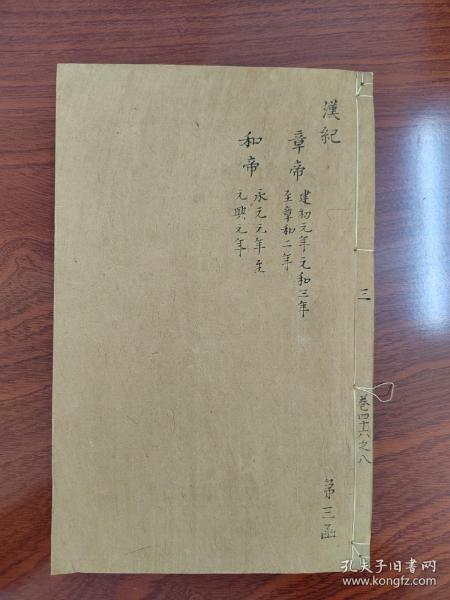 漢紀
章帝
建初元年元和三年
至章和二年
和帝
永元元年至
元興元年
三
卷四十六之八
第三函
孔夫子旧书网
www.kongfz.com